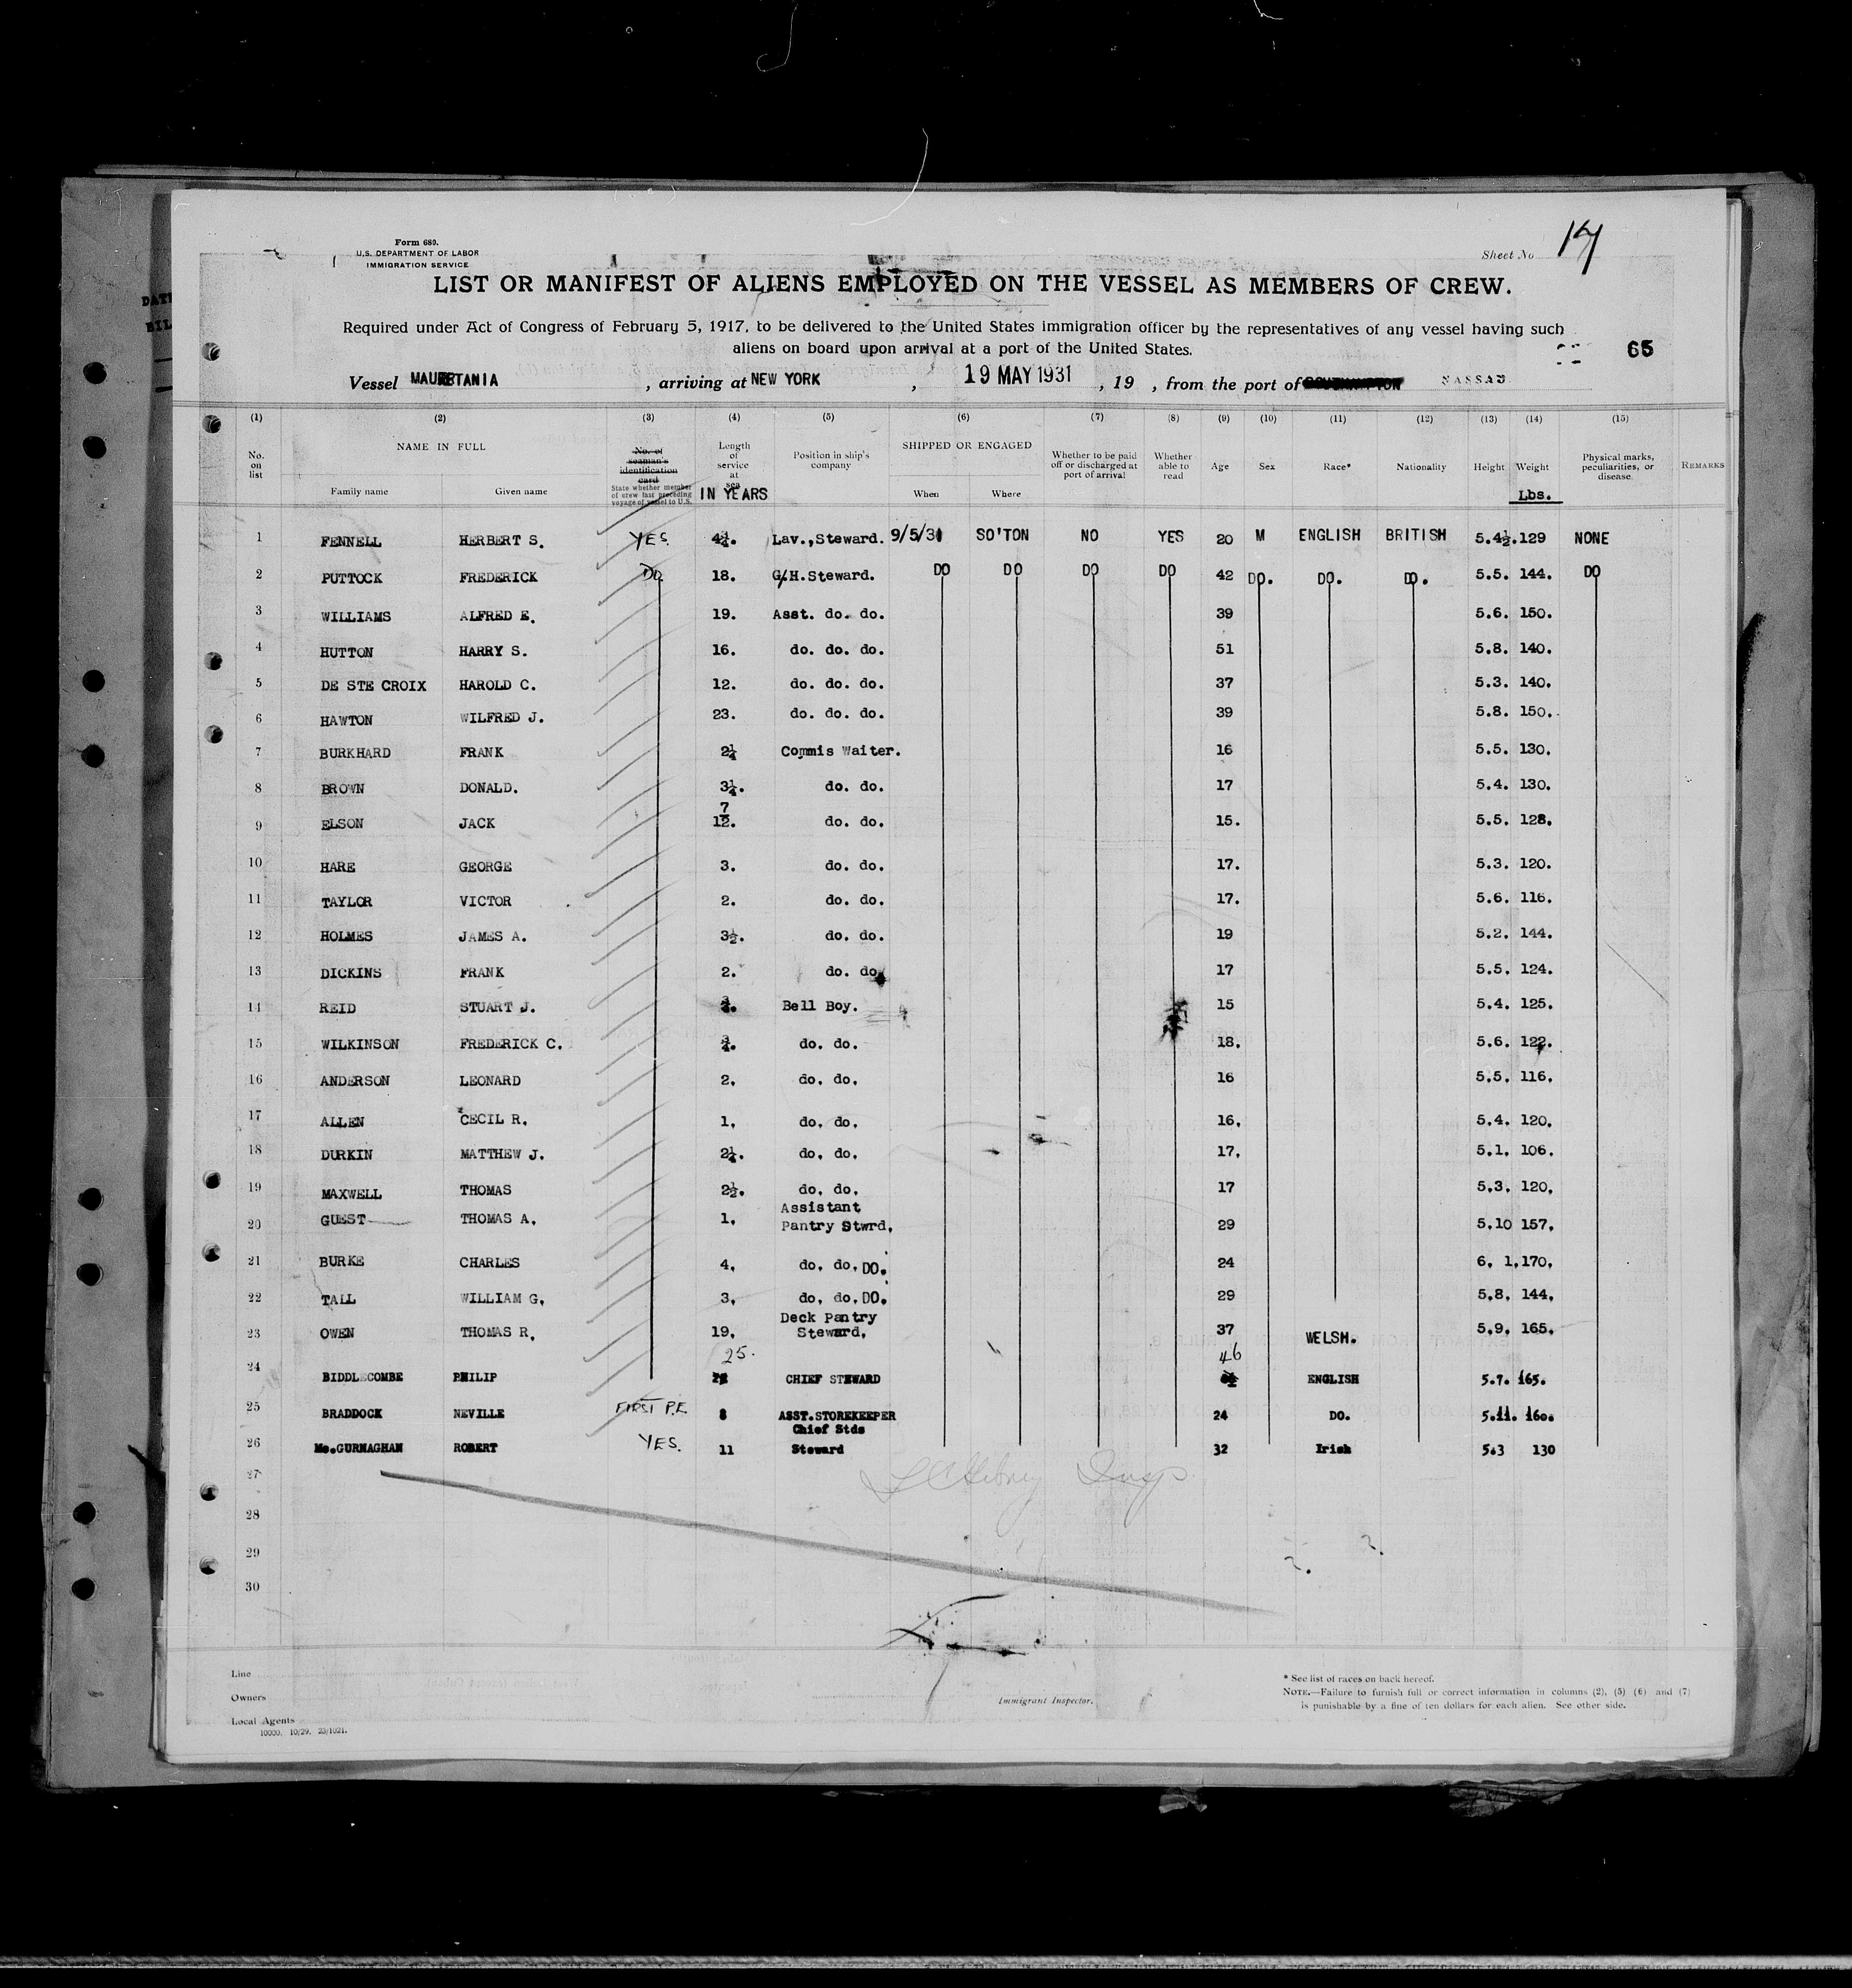 Form 680.
U.S. DEPARTMENT OF LABOR
IMMIGRATION SERVICE
Sheet No
LIST OR MANIFEST OF ALIENS EMPLOYED ON THE VESSEL AS MEMBERS OF CREW.
Required under Act of Congress of February 5, 1917, to be delivered to the United States immigration officer by the representatives of any vessel having such
aliens on board upon arrival at a port of the United States.
65
Vessel MAURETANIA , arriving at NEW YORK , 19 MAY 1931 , 19 , from the port of SOUTHAMPTON NASSAU
(1) (2) (3) (4) (5) (6) (7) (8) (9) (10) (11) (12) (13) (14) (15)
No. on list NAME IN FULL Family name Given name No. of seaman's identification card State whether member of crew last preceding voyage of vessel to U.S. Length of service at sea IN YEARS Position in ship's company SHIPPED OR ENGAGED When Where Whether to be paid off or discharged at port of arrival Whether able to read Age Sex Race* Nationality Height Weight Lbs. Physical marks, peculiarities, or disease REMARKS
1 FENNELL HERBERT S. YES. 4¼. Lav.,Steward. 9/5/31 SO'TON NO YES 20 M ENGLISH BRITISH 5.4½.129 NONE
2 PUTTOCK FREDERICK DO 18. G/H.Steward. DO DO DO DO 42 DO. DO. DO. 5.5. 144. DO
3 WILLIAMS ALFRED E. 19. Asst. do. do. 39 5.6. 150.
4 HUTTON HARRY S. 16. do. do. do. 51 5.8. 140.
5 DE STE CROIX HAROLD C. 12. do. do. do. 37 5.3. 140.
6 HAWTON WILFRED J. 23. do. do. do. 39 5.8. 150.
7 BURKHARD FRANK 2¼ Commis Waiter. 16 5.5. 130.
8 BROWN DONALD. 3¼. do. do. 17 5.4. 130.
9 ELSON JACK 7/12. do. do. 15. 5.5. 128.
10 HARE GEORGE 3. do. do. 17. 5.3. 120.
11 TAYLOR VICTOR 2. do. do. 17. 5.6. 116.
12 HOLMES JAMES A. 3½. do. do. 19 5.2. 144.
13 DICKINS FRANK 2. do. do 17 5.5. 124.
14 REID STUART J. ¾. Bell Boy. 15 5.4. 125.
15 WILKINSON FREDERICK C. ¾. do. do. 18. 5.6. 122.
16 ANDERSON LEONARD 2. do. do. 16 5.5. 116.
17 ALLEN CECIL R. 1. do. do. 16. 5.4. 120.
18 DURKIN MATTHEW J. 2¼. do. do. 17. 5.1. 106.
19 MAXWELL THOMAS 2½. do. do. 17 5.3. 120.
20 GUEST THOMAS A. 1. Assistant Pantry Stwrd. 29 5.10 157.
21 BURKE CHARLES 4. do. do. DO. 24 6. 1.170.
22 TALL WILLIAM G. 3. do. do. DO. 29 5.8. 144.
23 OWEN THOMAS R. 19. Deck Pantry Steward. 37 WELSH. 5.9. 165.
24 BIDDLECOMBE PHILIP 25. CHIEF STEWARD 46 ENGLISH 5.7. 165.
25 BRADDOCK NEVILLE FIRST P.E. 8 ASST.STOREKEEPER 24 DO. 5.11. 160.
26 Mc.GURNAGHAN ROBERT YES. 11 Chief Stds Steward 32 Irish 5.3 130
27
28
29
30
Line
Owners
Local Agents
10000. 10/29. 23/1021.
Immigrant Inspector.
* See list of races on back hereof.
NOTE.—Failure to furnish full or correct information in columns (2), (5) (6) and (7)
is punishable by a fine of ten dollars for each alien. See other side.